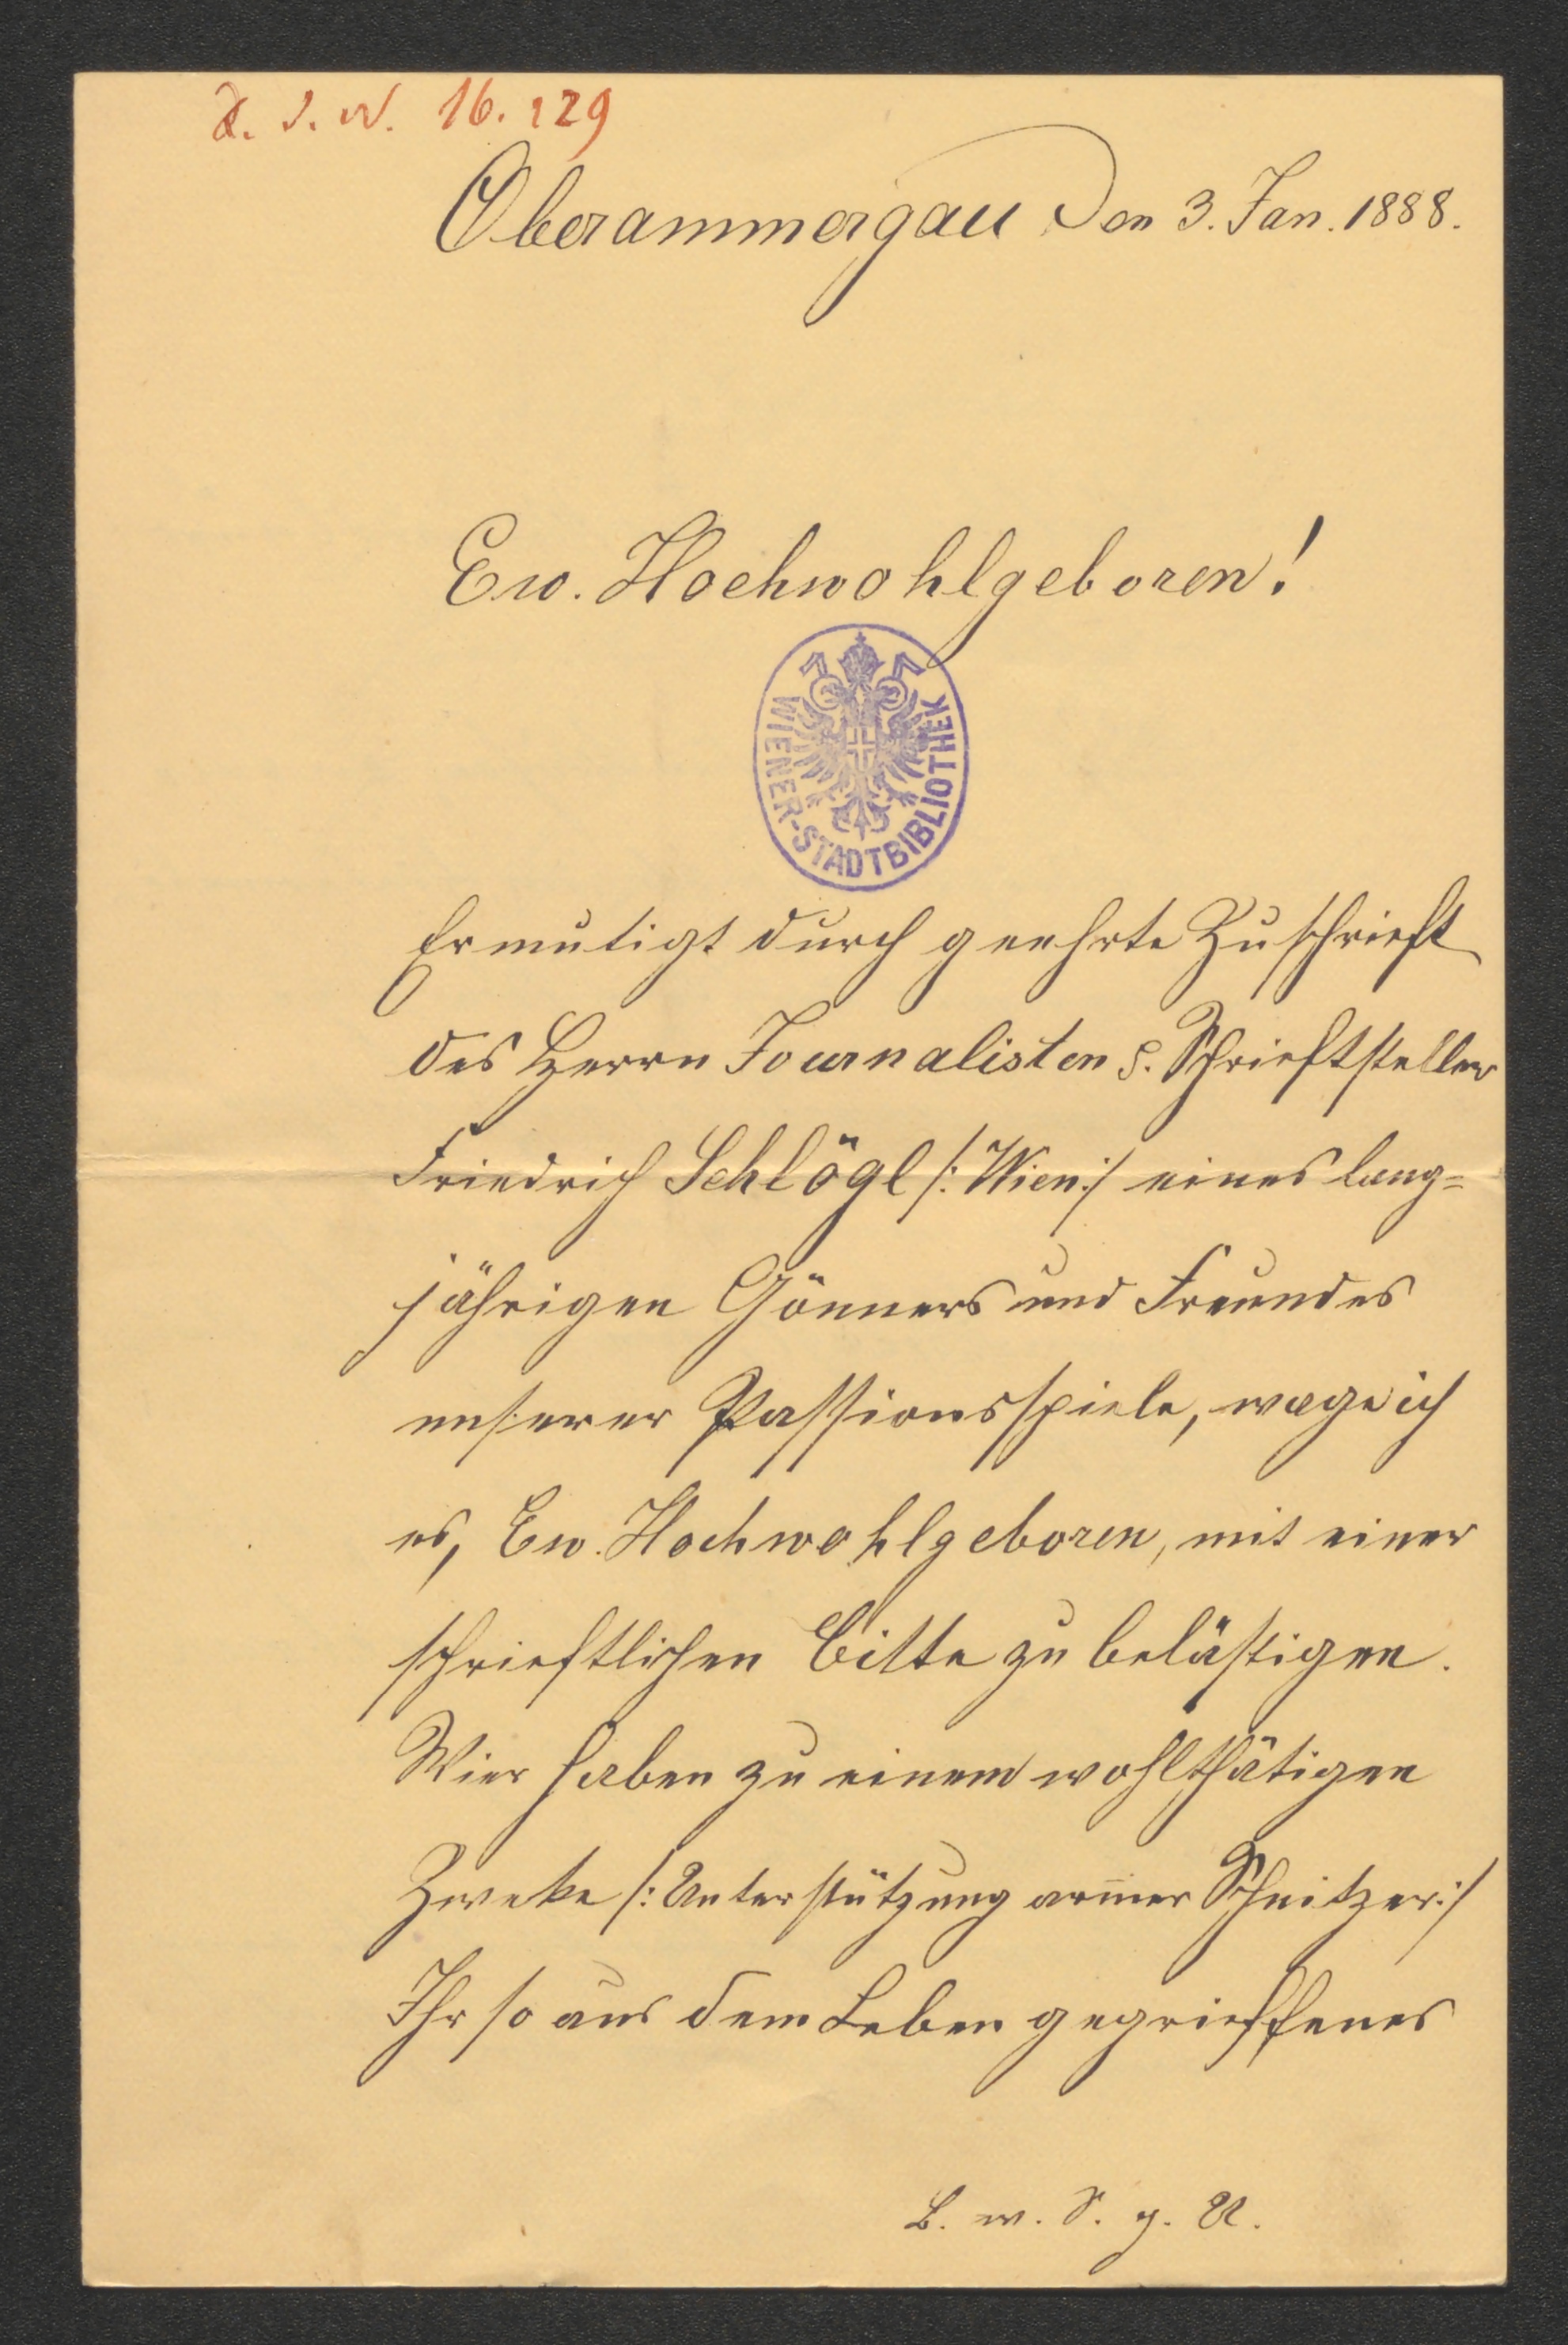 I. N. 16.129
Oberammergau den 3. Jan. 1888.
Ew. Hochwohlgeboren!
WIENER-STADTBIBLIOTHEK
Ermutigt durch geehrte Zuschrieft
des Herrn Journalisten &. Schrieftsteller
Friedrich Schlögl /: Wien :/ eines lang=
jährigen Gönners und Freundes
unserer Passionsspiele, wage ich
es, Ew. Hochwohlgeboren, mit einer
schrieftlichen Bitte zu belästigen.
Wier haben zu einem wohlthätigen
Zweke /: Unterstützung armer Schnitzer :/
Ihr so aus dem Leben gegrieffenes
B. w. S. g. U.